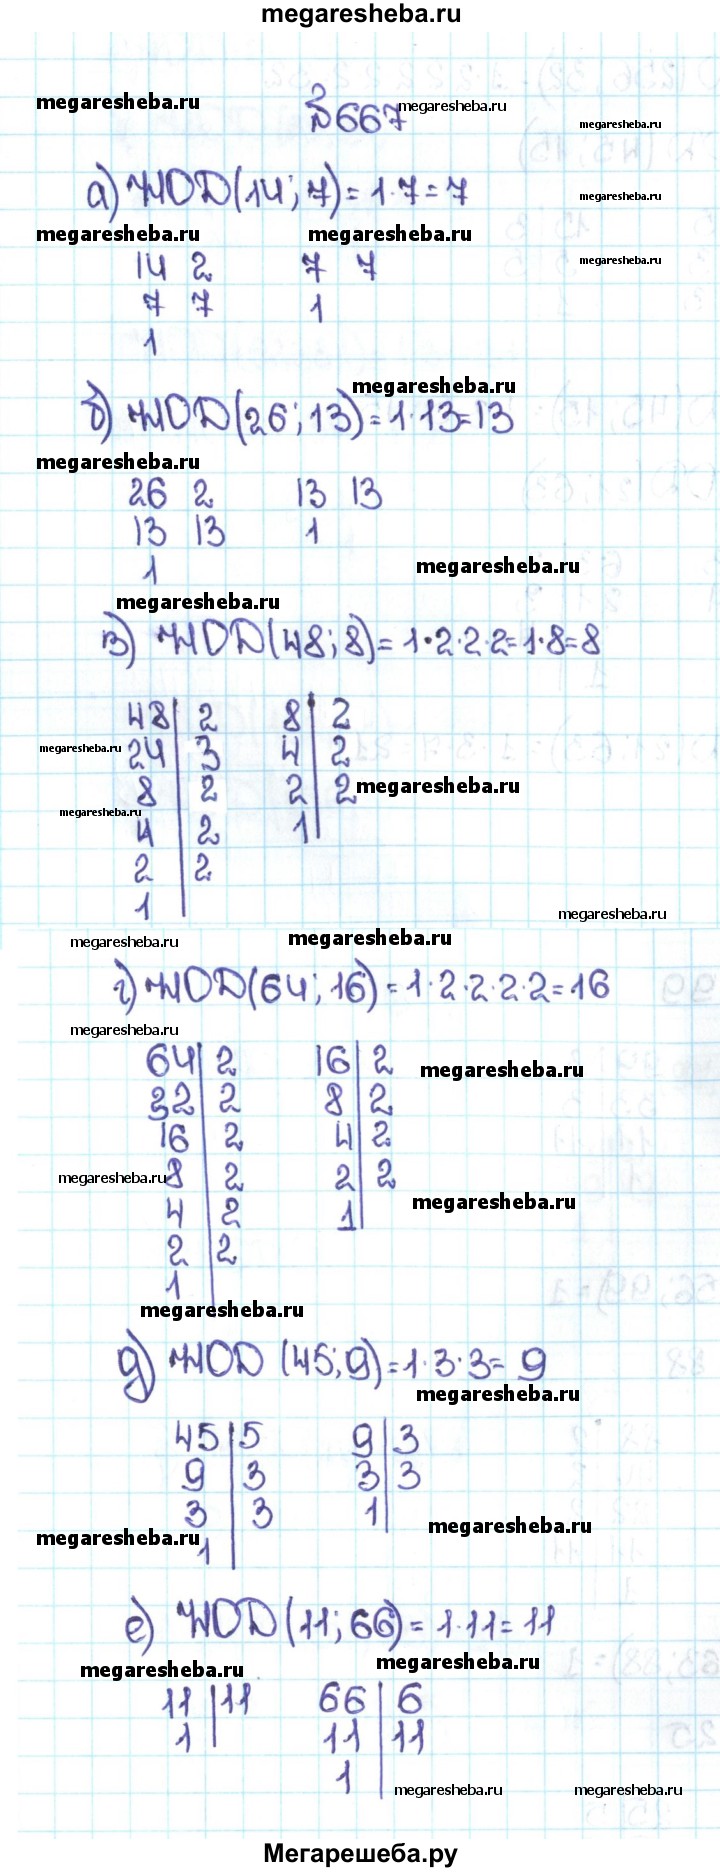 megaresheba.ru
megaresheba.ru
№667
megaresheba.ru
megaresheba.ru
а) НОД(14; 7) = 1·7 = 7
megaresheba.ru
megaresheba.ru
megaresheba.ru
14 2 7 7
megaresheba.ru
7 7 1
1
megaresheba.ru
б) НОД(26; 13) = 1·13 = 13
megaresheba.ru
26 2 13 13
13 13 1
1
megaresheba.ru
megaresheba.ru
в) НОД(48; 8) = 1·2·2·2 = 1·8 = 8
48 | 2 8 | 2
megaresheba.ru
24 | 3 4 | 2
8 | 2 2 | 2
megaresheba.ru
megaresheba.ru
4 | 2 1 |
2 | 2
1 |
megaresheba.ru
megaresheba.ru
megaresheba.ru
г) НОД(64; 16) = 1·2·2·2·2 = 16
megaresheba.ru
64 | 2 16 | 2
megaresheba.ru
32 | 2 8 | 2
16 | 2 4 | 2
8 | 2 2 | 2
megaresheba.ru
megaresheba.ru
4 | 2 1 |
2 | 2
1 |
megaresheba.ru
д) НОД (45; 9) = 1·3·3 = 9
megaresheba.ru
45 | 5 9 | 3
9 | 3 3 | 3
3 | 3 1 |
megaresheba.ru
megaresheba.ru
1 |
е) НОД(11; 66) = 1·11 = 11
megaresheba.ru
megaresheba.ru
11 | 11 66 | 6
1 | 11 | 11
1 |
megaresheba.ru
megaresheba.ru
Мегарешеба.ру